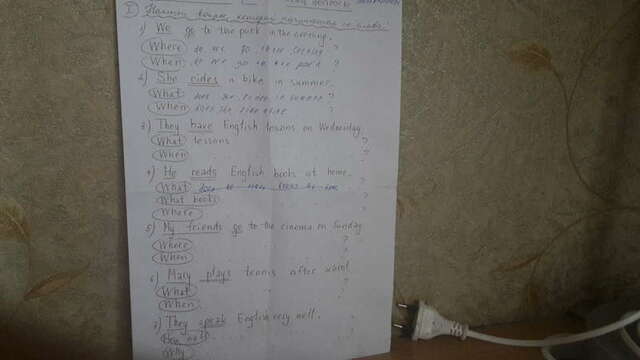 I Напиши вопрос, который начинается со слова:
1) We go to the park in the evening.
Where do we go ?
When do we go to the park ?
2) She rides a bike in summer.
What does she in summer ?
When does she ?
3) They have English lessons on Wednesday.
What lessons ?
When ?
4) He reads English books at home.
What ?
What books ?
Where ?
5) My friends go to the cinema on Sunday
Where ?
When ?
6) Mary plays tennis after school
What ?
When ?
7) They speak English very well.
How well ?
Why